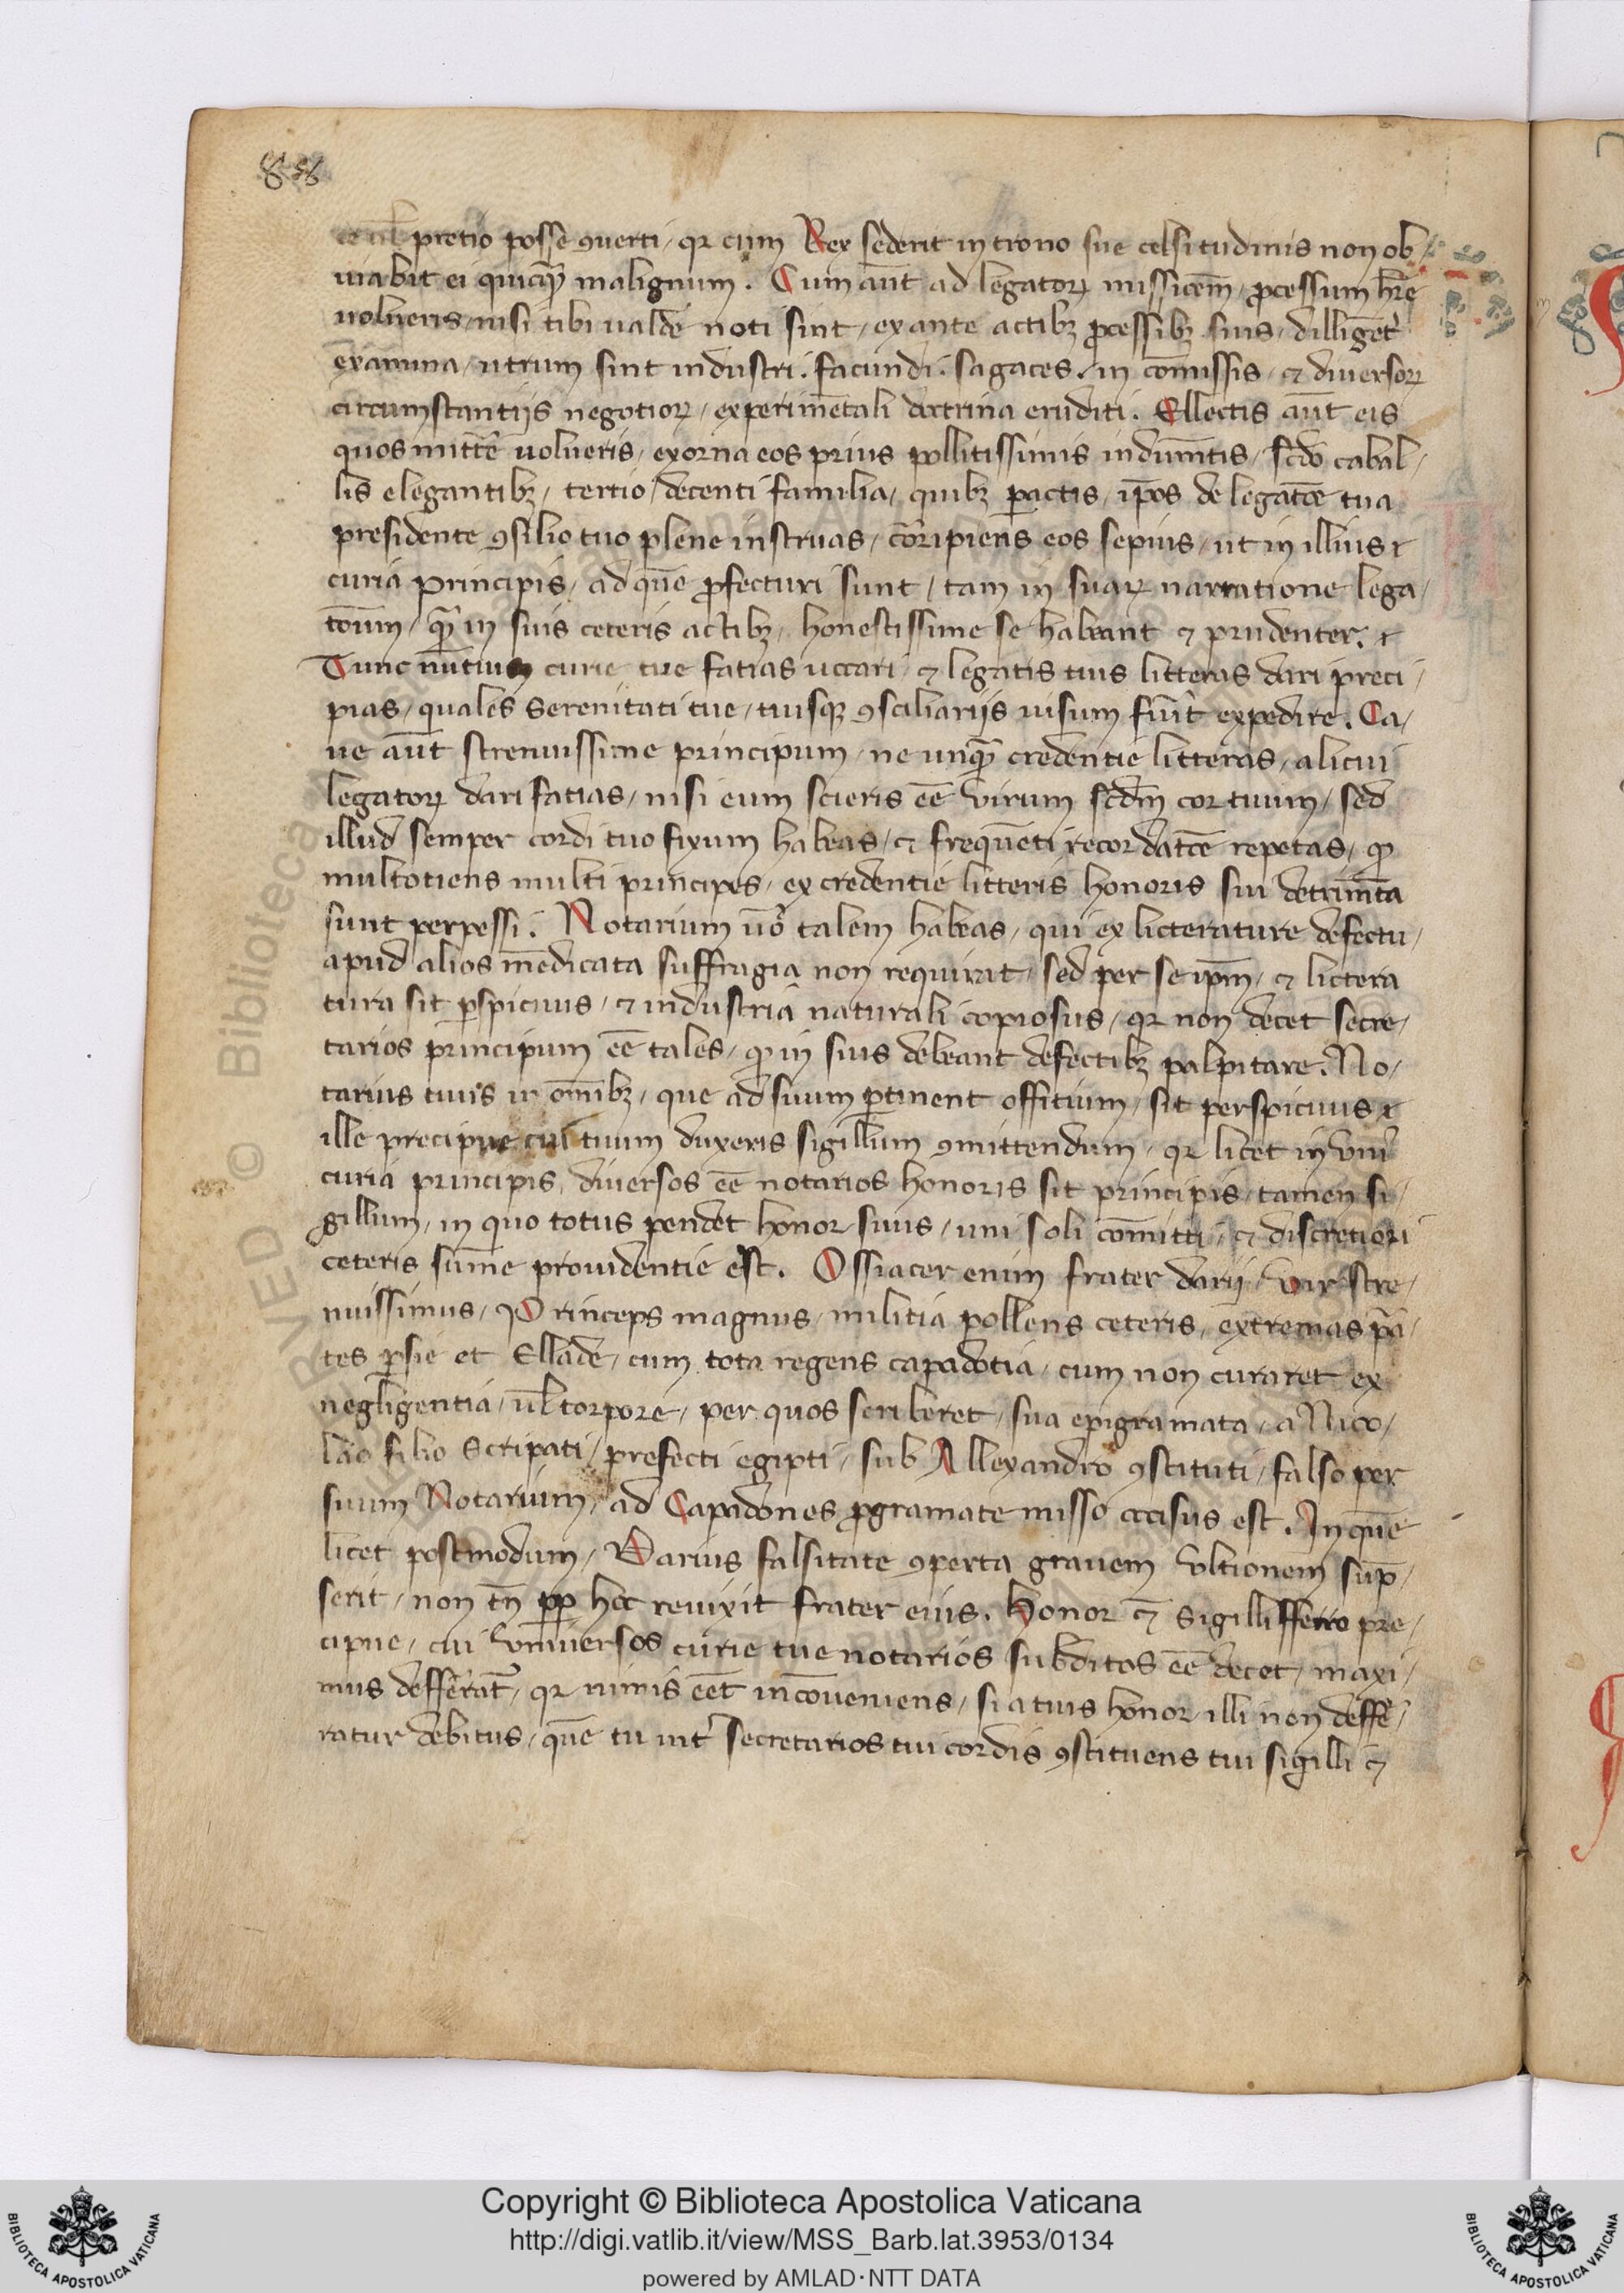 pretio posse ꝯuerti / qꝛ cum Rex sederit in trono sue celsitudinis non ob /
uiabit ei quicq̄ malignum . Cum aūt ad legatoꝝ missiōem̄ / ꝓcessum hr̄e
uolueris / nisi tibi ualde noti sint / ex ante actibꝫ ꝓcessibꝫ suis / dilligēt̓
examina / utrum sint industri . facundi . sagaces . in cōmissis / ⁊ diuersoꝝ
circumstantijs negotioꝝ / experimētali doctrina eruditi . Ellectis aūt eis
quos mitt̄e uolueris / exorna eos prius pollitissimis indum̄tis / scd̄o cabal /
lis elegantibꝫ / tertio / decenti familia / quibꝫ ꝑactis / ip̄os de legatōe tua
presidente ꝯsilio tuo plene instruas / cōripiens eos sepius / ut in illius
curia principis / ad quē ꝓfecturi sunt / tam in suaꝝ narratione lega /
tōum / q̄ in suis ceteris actibꝫ / honestissime se habeant ⁊ prudenter .
Tunc nūtium curie tue fatias uocari / ⁊ legatis tuis litteras dari preci /
pias / quales serenitati tue / tuisqꝫ ꝯsciliarijs uisum fūit expedire . Ca /
ue aūt strenuissime principum / ne unq̄ credentie litteras / alicui
legatoꝝ dari fatias / nisi eum scieris eē virum scd̄m cor tuum / sed
illud semper cordi tuo fixum habeas / ⁊ frequēti recordatōe repetas / ꝙ
multotiens multi principes / ex credentie litteris honoris sui detrim̄ta
sunt perpessi . Notarium u̓o talem habeas / qui ex licterature defectu /
apud alios mēdicata suffragia non requirat / sed per se ip̄m / ⁊ lictera
tura sit ꝑspicuus / ⁊ industria naturali copiosus / qꝛ non decet secre /
tarios principum eē tales / ꝙ in suis debeant defectibꝫ palpitare . No /
tarius tuus in om̄ibꝫ / que ad suum ꝑtinent offitium / sit perspicuus
ille precipue cui tuum duxeris sigillum ꝯmittendum / qꝛ licet in vni̓
curia principis / diuersos eē notarios honoris sit principis / tamen si /
gillum / in quo totus pendet honor suus / uni soli cōmitti / ⁊ discretiori
ceteris sum̄e prouidentie est . Ossiacer enim frater darij / vir stre /
nuissimus / Princeps magnus / militia pollens ceteris / extremas pa /
tes ꝑsie et Ellade / cum tota regens capadotia / cum non curaret ex
negligentia / ul̄ torpore / per quos scriberet / sua epigramata / a Nico /
lao filio Scripati / prefecti egipti / sub Allexandro ꝯstituti / falso per
suum Notarium / ad Capadones ꝓgramate misso occisus est . In quē
licet postmodum / Darius falsitate ꝯperta grauem vltionem sūp /
serit / non tn̄ ꝓp hoc reuixit frater eius . Honor ⁊ sigilliffero pre /
cipue / cui vniuersos curie tue notarios subditos eē decet / maxi /
mus defferat̓ / qꝛ nimis eēt incōueniens / si a tuis honor illi non deffe /
ratur debitus / quē tu int̓ secretarios tui cordis ꝯstituens tui sigilli ⁊
Copyright © Biblioteca Apostolica Vaticana
http://digi.vatlib.it/view/MSS_Barb.lat.3953/0134
powered by AMLAD·NTT DATA
BIBLIOTECA APOSTOLICA VATICANA
BIBLIOTECA APOSTOLICA VATICANA